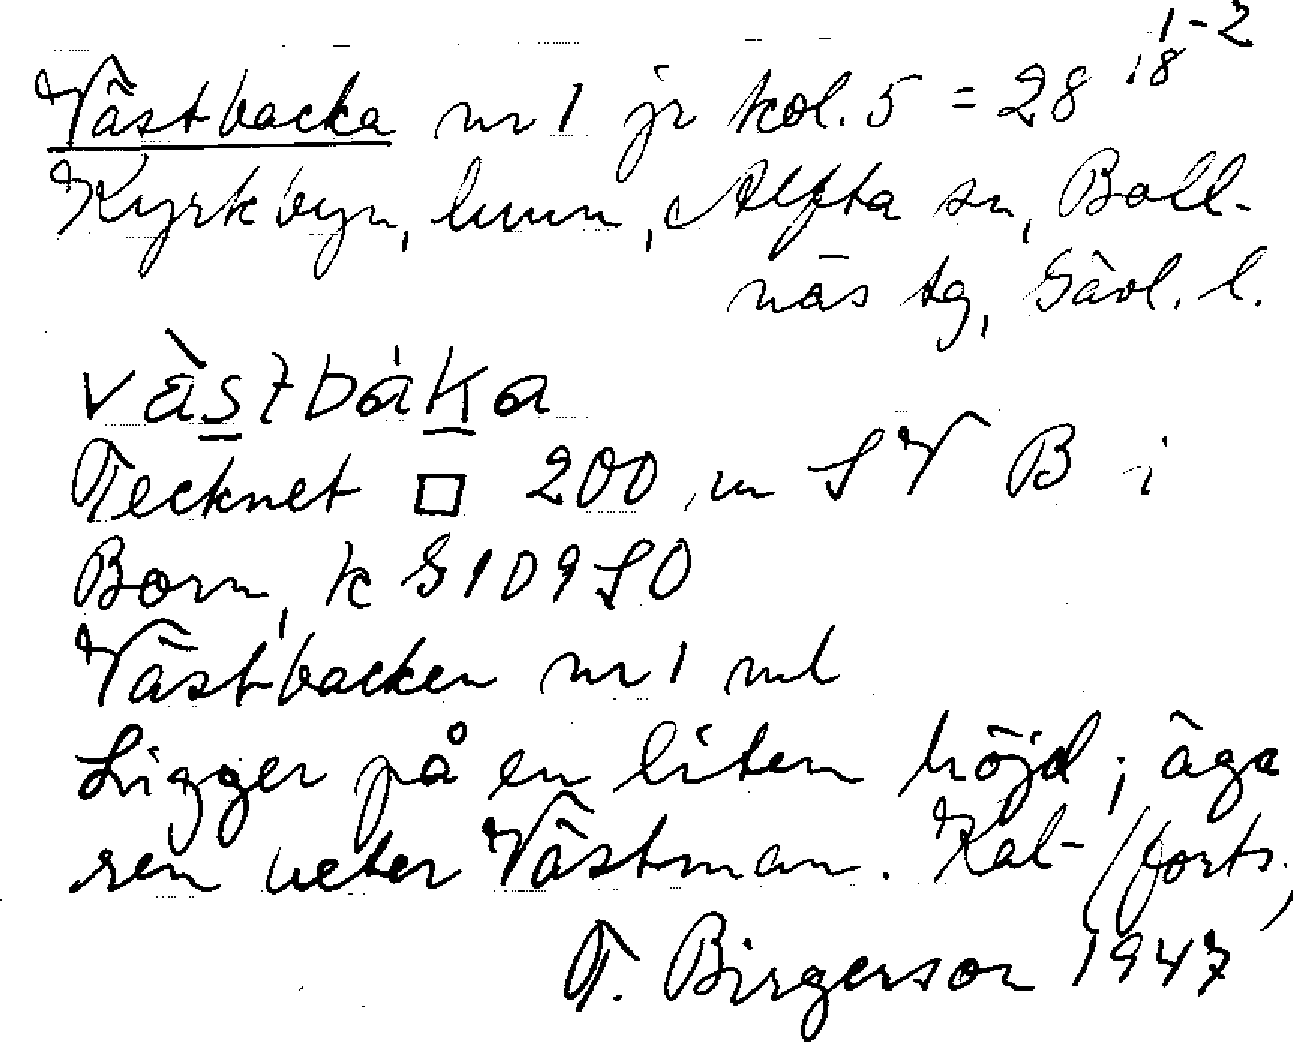 1-2
Västbacka nr 1 jr kol. 5 = 28 18
Kyrkbyn, hmn, Alfta sn, Boll-
näs tg, Gävl. l.
västbáka
Tecknet □ 200 m SV B i
Born, k S109SO
Västbacken nr 1 ml
Ligger på en liten höjd; äga
ren heter Västman. Kal- (forts.)
T. Birgerson 1947